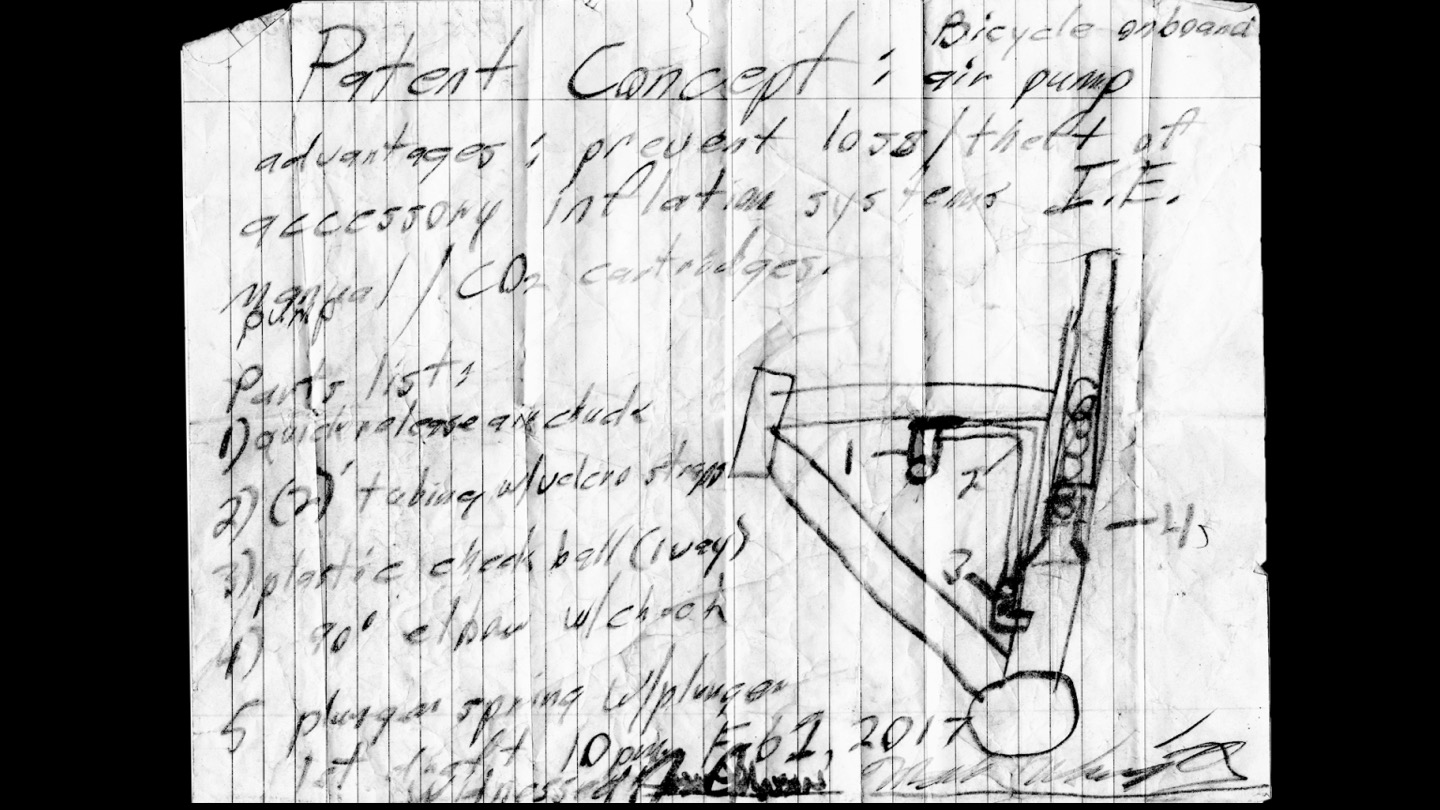 Bicycle onboard
Patent Concept : air pump
advantages : prevent loss/theft of
accessory inflation systems I.E.
manual / CO2 cartridges.
pump
Parts list:
1) quick release air chuck
2) (2)' tubing w/velcro straps
3) plastic check ball (1 way)
4) 90° elbow w/check
5 plunger spring w/plunger
1st draft 10pm Feb 2, 2017
Witnessed
1
2
3
4